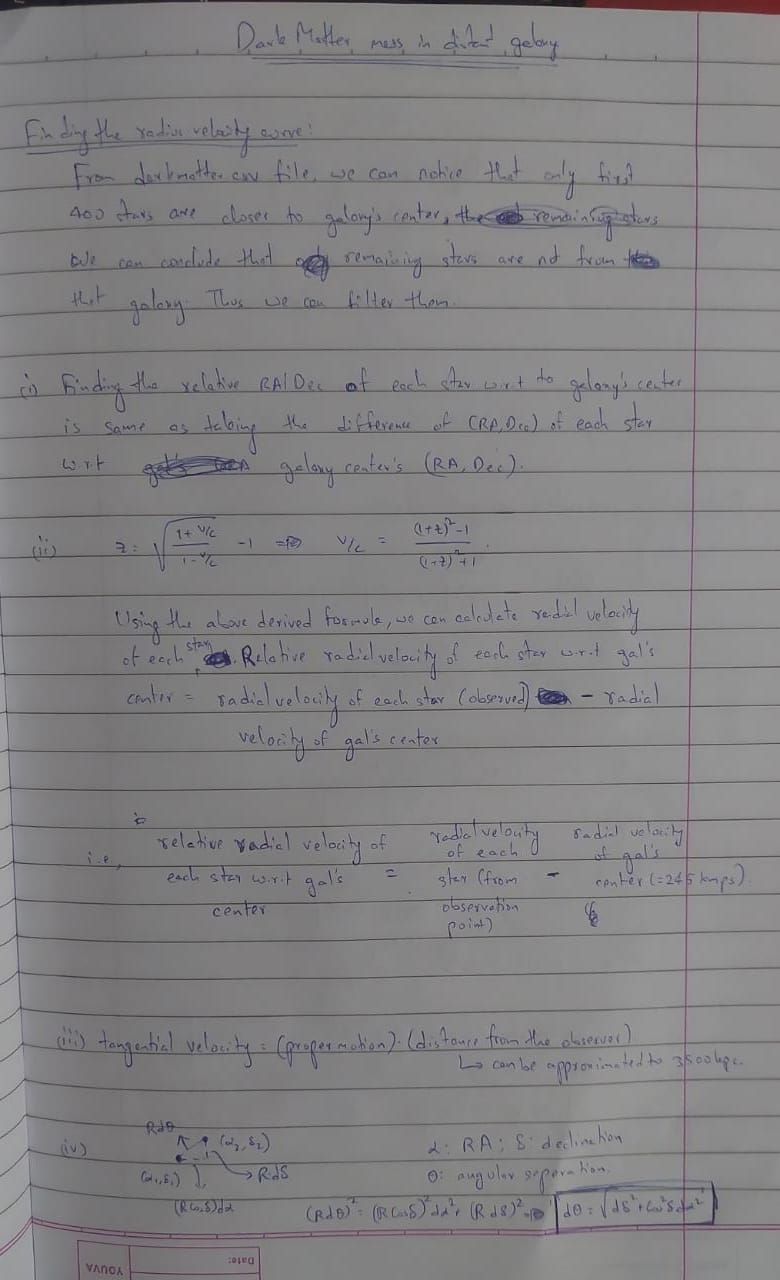 Dark Matter mass in distant galaxy
Finding the radius velocity curve:
From darkmatter.csv file, we can notice that only first
400 stars are closer to galaxy's center, the remaining stars
We can conclude that remaining stars are not from
that galaxy. Thus we can filter them.
(i) Finding the relative RA/Dec of each star w.r.t to galaxy's center
is same as taking the difference of (RA, Dec) of each star
w.r.t galaxy center's (RA, Dec).
(ii) z = √((1 + v/c)/(1 - v/c)) - 1 => v/c = ((1+z)² - 1)/((1+z)² + 1).
Using the above derived formula, we can calculate radial velocity
of each star. Relative radial velocity of each star w.r.t gal's
center = radial velocity of each star (observed) - radial
velocity of gal's center
i.e, relative radial velocity of each star w.r.t gal's center = radial velocity of each star (from observation point) - radial velocity of gal's center (=245 kmps).
(iii) tangential velocity = (proper motion). (distance from the observer)
↳ can be approximated to 3500 kpc.
(iv) Rdθ (α₂, δ₂) α: RA; δ: declination
(α₁, δ₁) → Rdδ θ: angular seperation.
(R cosδ)dα (Rdθ)² = (R cosδ)² dα² + (R dδ)² => dθ = √(dδ² + cos²δ dα²)
Date:
YOUVA